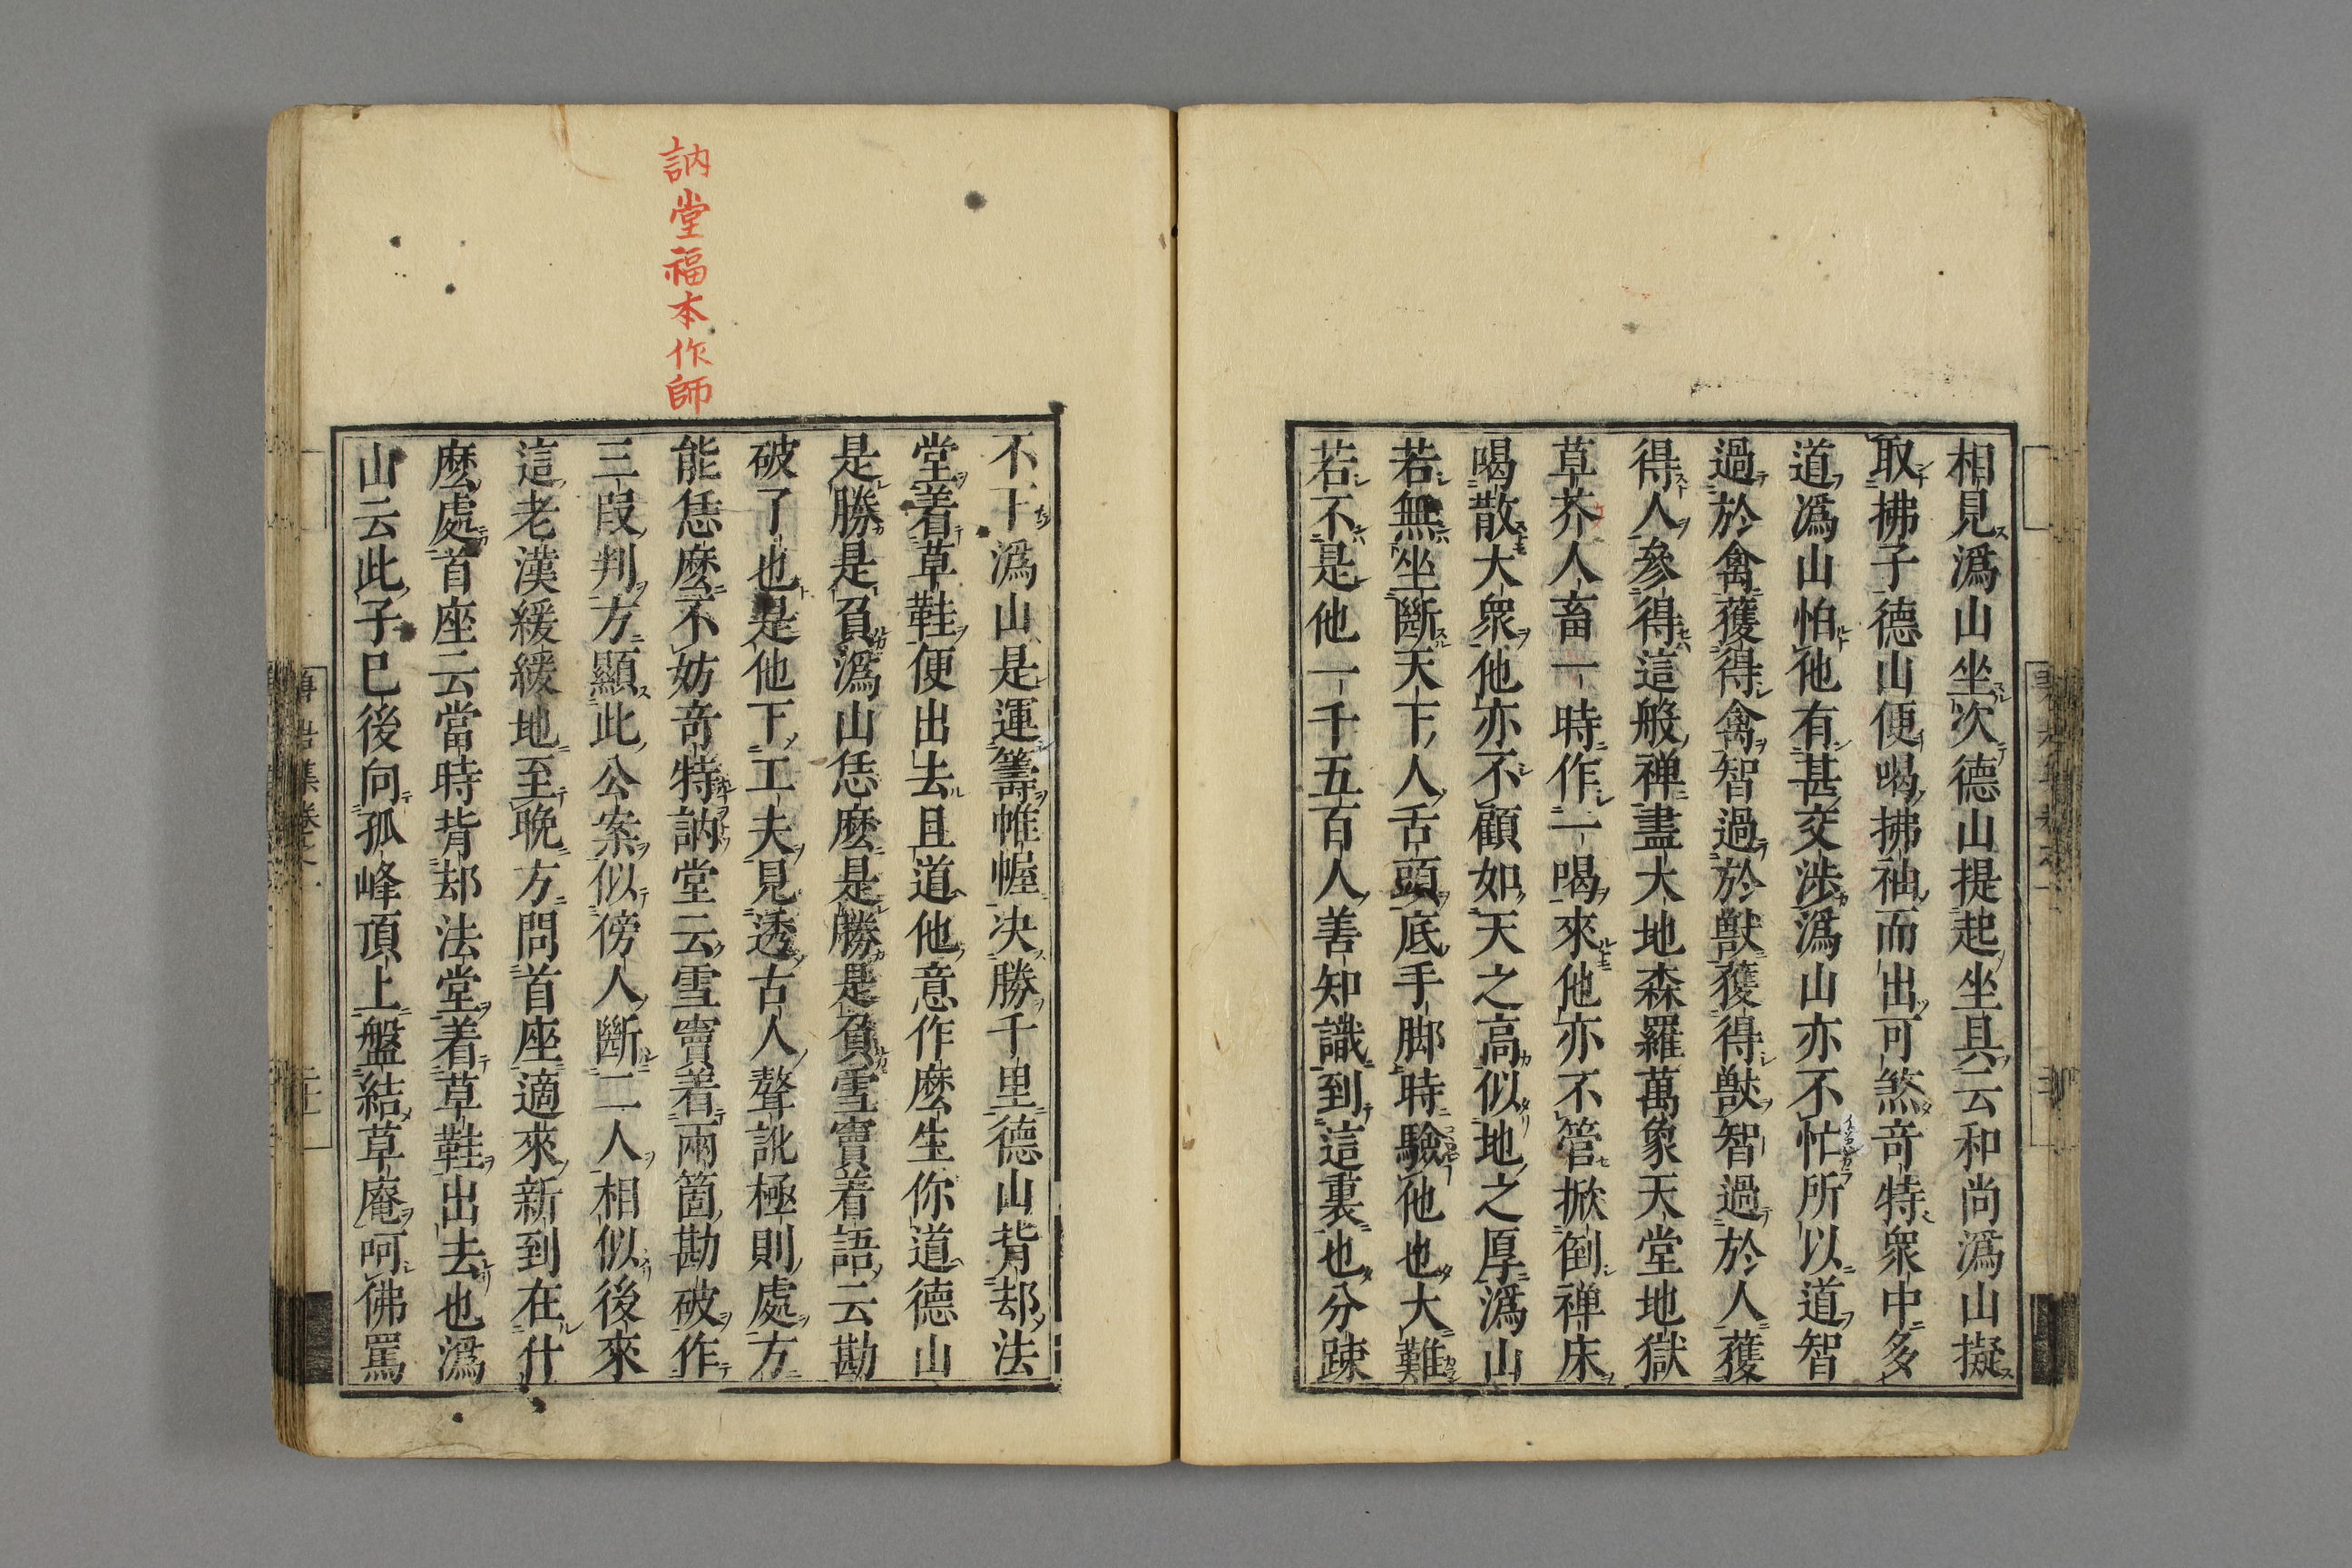 相見潙山坐次德山提起坐具云和尚潙山擬
取拂子德山便喝拂袖而出可煞竒特衆中多
道潙山怕他有甚交渉潙山亦不忙所以道智
過於禽獲得禽智過於獣獲得獣智過於人獲
得人參得這般禅盡大地森羅萬象天堂地獄
草芥人畜一時作一喝來他亦不管掀倒禅床
喝散大衆他亦不顧如天之高似地之厚潙山
若無坐斷天下人舌頭底手脚時驗他也大難
若不是他一千五百人善知識到這裏也分踈
訥堂福本作師
不下潙山是運籌帷幄决勝千里德山背却法
堂着草鞋便出去且道他意作麽生你道德山
是勝是負潙山恁麽是勝是負雪竇着語云勘
破了也是他下工夫見透古人聱訛極則處方
能恁麽不妨竒特訥堂云雪竇着兩箇勘破作
三段判方顯此公案似傍人斷二人相似後來
這老漢緩緩地至晩方問首座適來新到在什
麽處首座云當時背却法堂着草鞋出去也潙
山云此子已後向孤峰頂上盤結草庵呵佛罵